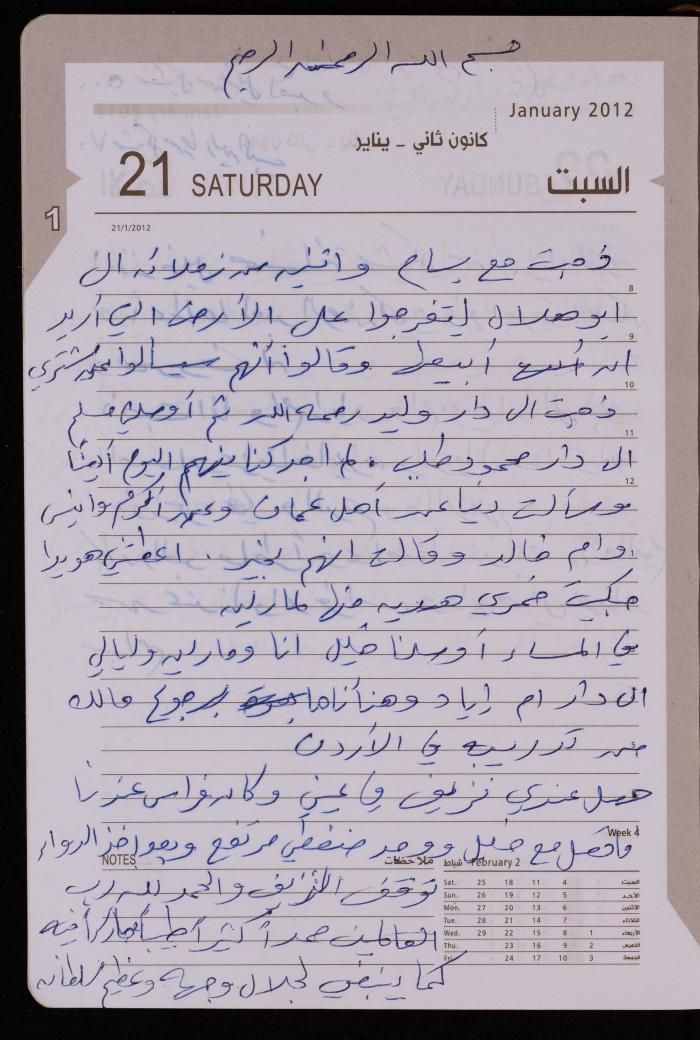 بسم الله الرحمن الرحيم
January 2012
كانون ثاني - يناير
21 SATURDAY السبت
1
21/1/2012
ذهبت مع بسام واثنين من زملائه الى
8
ابو هلال ليتفرجوا على الأرض التي أريد
9
ان أبيعها وقالوا أنهم سيسألوا عن مشتري
10
ذهبت الى دار وليد رحمه الله ثم أوصلني
11
الى دار محمود طلب . لم اجد كنا بينهم اليوم أيضاً
12
وسألت دنيا عن أهل عمان وعن اكرم وانيس
وام خالد وقالت انهم بخير . اعطتني هويدا
جكيت خمري هديه منها لمارلين
في المساء أوصلنا خليل انا ومارلين وليالي
الى دار ام إياد وهنأناها برجوع مالك
5
من تدريبه في الأردن
حصل عندي نزيف في عيني وكان فراس عندنا
Week 4
فاتصل مع خليل ووجد ضغطي مرتفع وبعد اخذ الدواء
NOTES ملاحظات February 2 شباط
توقف النزيف والحمد لله رب
العالمين حمداً كثيراً طيباً مباركاً فيه
كما ينبغي لجلال وجهه وعظيم سلطانه
Sat. 25 18 11 4 السبت
Sun. 26 19 12 5 الأحد
Mon. 27 20 13 6 الإثنين
Tue. 28 21 14 7 الثلاثاء
Wed. 29 22 15 8 1 الأربعاء
Thu. 23 16 9 2 الخميس
Fri. 24 17 10 3 الجمعة